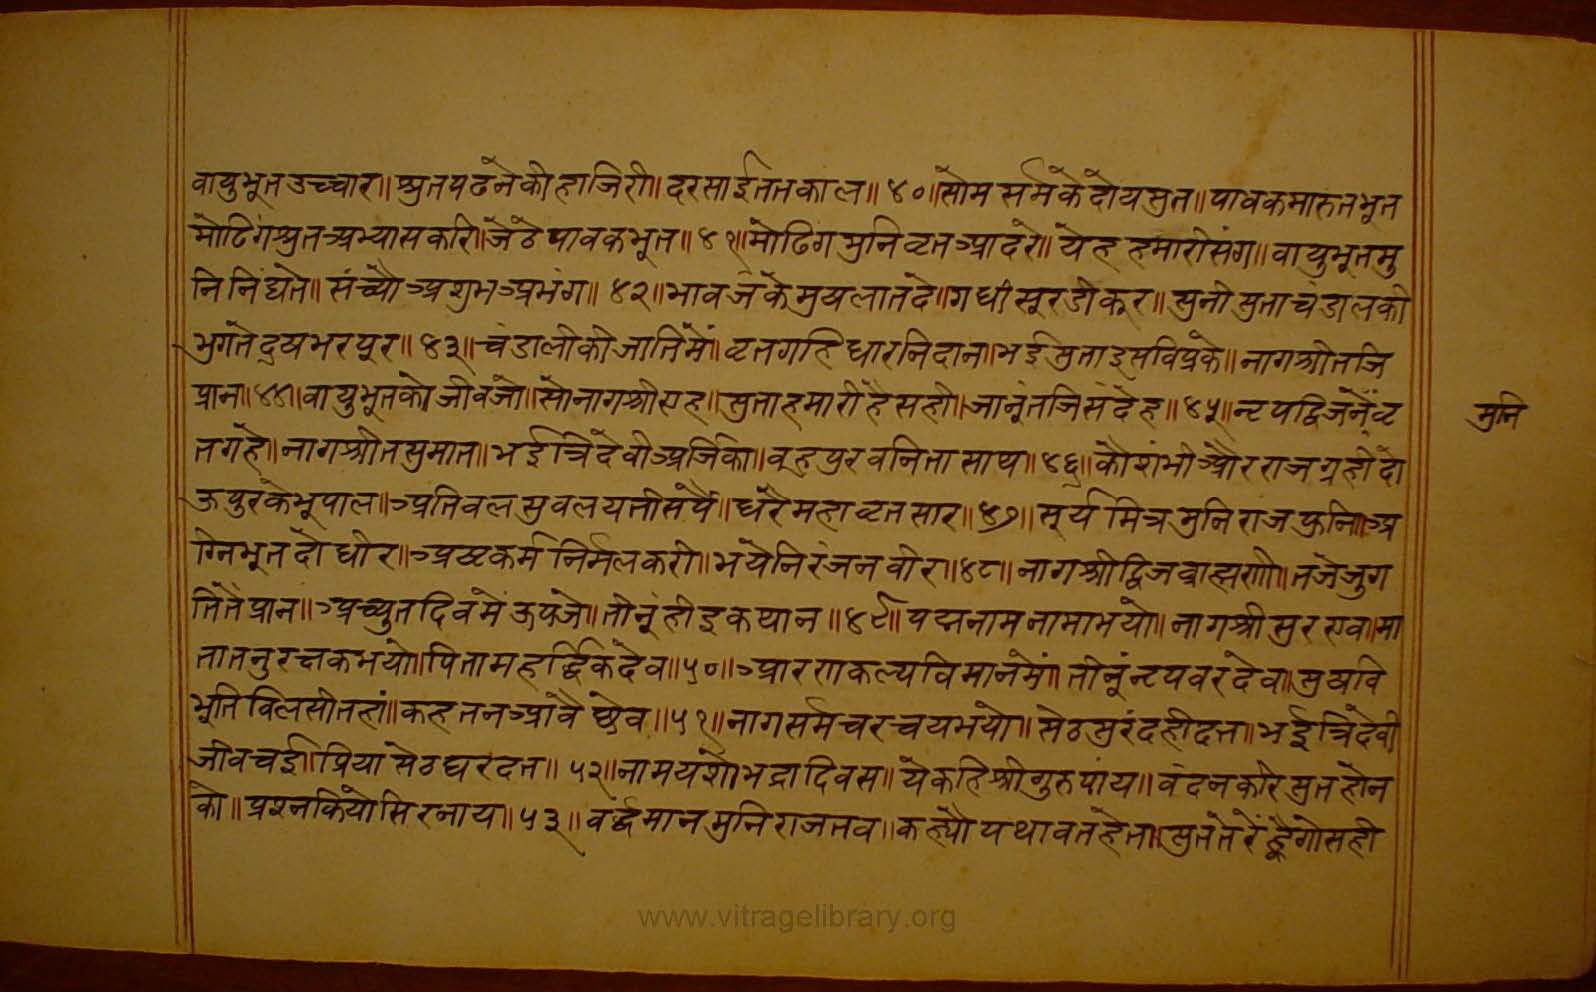 वायुभूतउच्चार॥ श्रुतपढनेकीहाजिरी॥ दरसाईततकाल॥ ४०॥ सोम सर्मकेदोयसुत॥ पावकमारुतभूत
मोटिंगश्रुतअभ्यासकरि॥ जेठेपावकभूत॥ ४१॥ मोटिगमुनिव्रतआदरे॥ येहहमारीसंग॥ वायुभूतमु
निनिंद्यते॥ संच्यौअशुभअभंग॥ ४२॥ भावजकेमुयलातदे॥ गधीसूरडीकूर॥ सुनीसुताचंडालकी
भुगतेदुयभरपूर॥ ४३॥ चंडालीकीजातिमें॥ व्रतगहिधारनिदान॥ भईसुताइसविप्रके॥ नागश्रीतजि
प्रान॥ ४४॥ वायुभूतकोजीवजो॥ सोनागश्रीएह॥ सुताहमारीहैसही॥ जानूंतजिसंदेह॥ ४५॥ नृपद्विजनेंव्र
तगहे॥ नागश्रीतसुमात॥ भईत्रिदेवीअर्जिका॥ वहपुरवनितासाथ॥ ४६॥ कोशंभीऔरराजग्रही॥ दो
ऊपुरकेभूपाल॥ अतिवलसुवलयतीसपैं॥ धरैमहाव्रतसार॥ ४७॥ सूर्यमित्रमुनिराजफुनि॥ अ
ग्निभूतदोधीर॥ अष्टकर्मनिर्मलकरी॥ भयेनिरंजनवीर॥ ४८॥ नागश्रीद्विजब्राह्मणी॥ तजेजुग
तितैप्रान॥ अच्युतदिवमेंऊपजे॥ तीनूंहीइकथान॥ ४९॥ पद्मनामनामाभयो॥ नागश्रीसुरएव॥ मा
तातनुरक्षकभयो॥ पितामहर्द्धिकदेव॥ ५०॥ आरणकल्पविमानमें॥ तीनूंनृपवरदेव॥ सुखवि
भूतिविलसीतहां॥ कहतनआवैछेव॥ ५१॥ नागसर्मचरचयभयो॥ सेठसुरंदहीदत्त॥ भईत्रिदेवी
जीवचई॥ प्रियासेठघरदत्त॥ ५२॥ नामयशोभद्रादिवस॥ येकहिश्रीगुरुपांय॥ वंदनकरिसुतहोन
को॥ प्रश्नकियोसिरनाय॥ ५३॥ वर्द्धमानमुनिराजतव॥ कह्यौयथावतहेत॥ सुततेरेंह्वैगोसही
मुनि
www.vitragelibrary.org